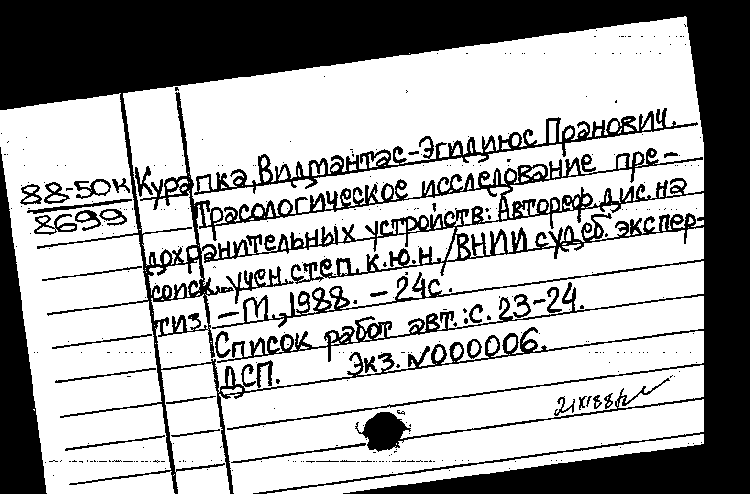 88-50к
8699
Курапка, Видмантас-Эгидиюс Пранович.
Трасологическое исследование пре-
дохранительных устройств: Автореф. дис. на
соиск. учен. степ. к.ю.н. / ВНИИ судеб. экспер-
тиз. – М., 1988. – 24с.
Список работ авт.: с. 23-24.
ДСП. Экз. №000006.